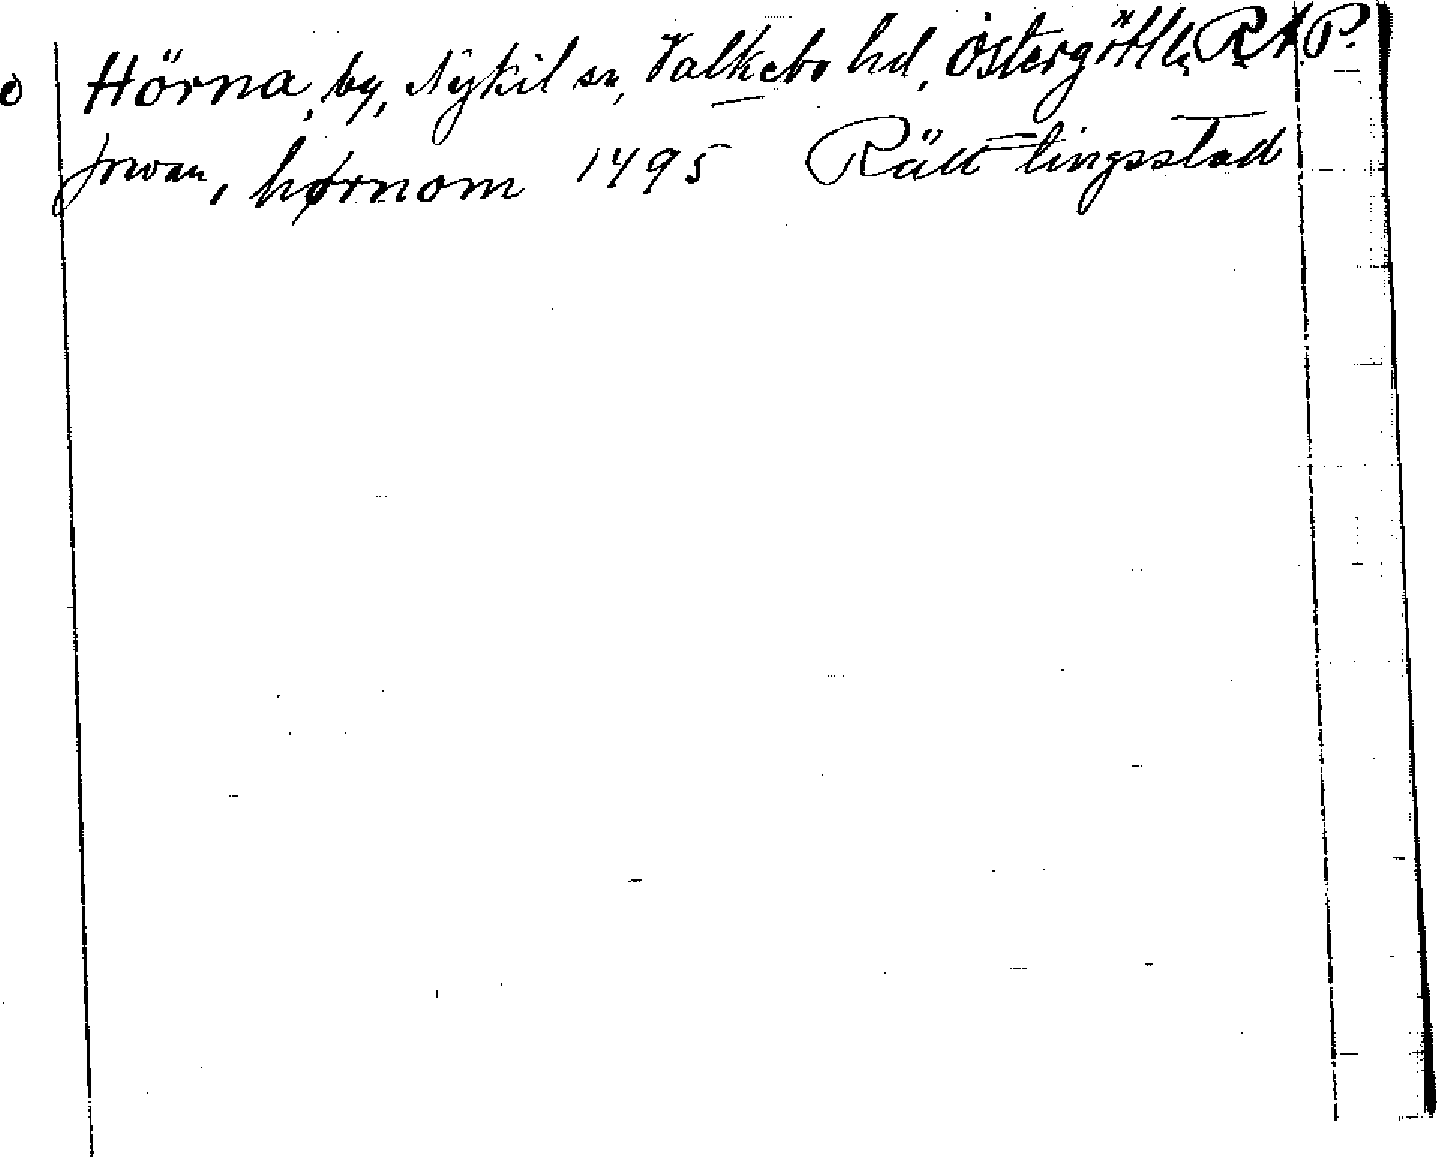 Hörna, by, Nykil sn, Valkebo hd, Östergötl l. RAP.
hørnom 1495 Rätt- tingsstad